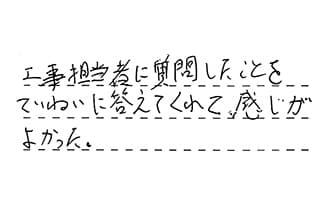 工事担当者に質問したことを
ていねいに答えてくれて、感じが
よかった。